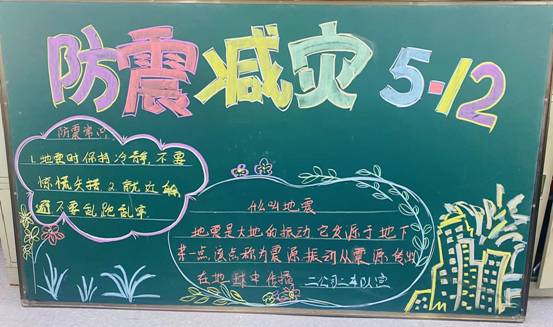 防震减灾 5·12
防震常识
1.地震时保持冷静,不要
惊慌失措 2.就近躲
避不要乱跑乱
什么叫地震
地震是大地的振动,它发源于地下
某一点,该点称为震源,振动从震源传出
在地球中传播 二公司二车队宣